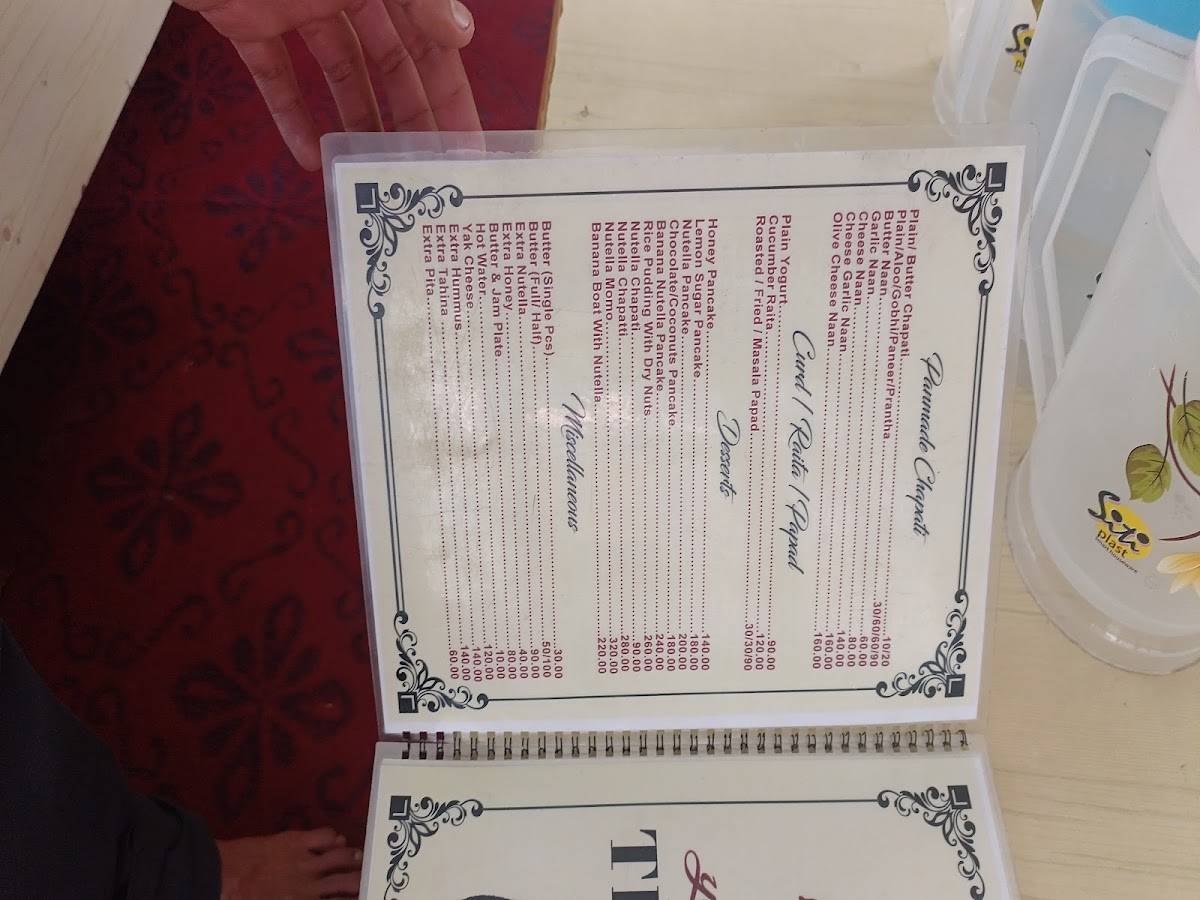 Panmade Chapati
Plain/ Butter Chapati 10/20
Plain/Aloo/Gobhi/Paneer/Prantha 30/60/60/90
Butter Naan 60.00
Garlic Naan
Cheese Naan 140.00
Cheese Garlic Naan 160.00
Olive Cheese Naan 160.00
Curd / Raita / Papad
Plain Yogurt 90.00
Cucumber Raita 120.00
Roasted / Fried / Masala Papad 30/30/90
Desserts
Honey Pancake 140.00
Lemon Sugar Pancake 180.00
Nutella Pancake 200.00
Chocolate/Coconuts Pancake 180.00
Banana Nutella Pancake 240.00
Rice Pudding With Dry Nuts 260.00
Nutella Chapati 90.00
Nutella Chapatti 280.00
Nutella Momo 320.00
Banana Boat With Nutella 220.00
Miscellaneous
Butter (Single Pcs) 30.00
Butter (Full/ Half) 50/100
Extra Nutella 90.00
Extra Honey 40.00
Butter & Jam Plate 80.00
Hot Water 10.00
Yak Cheese 120.00
Extra Hummus 140.00
Extra Tahina 140.00
Extra Pita 60.00
Siti
plast